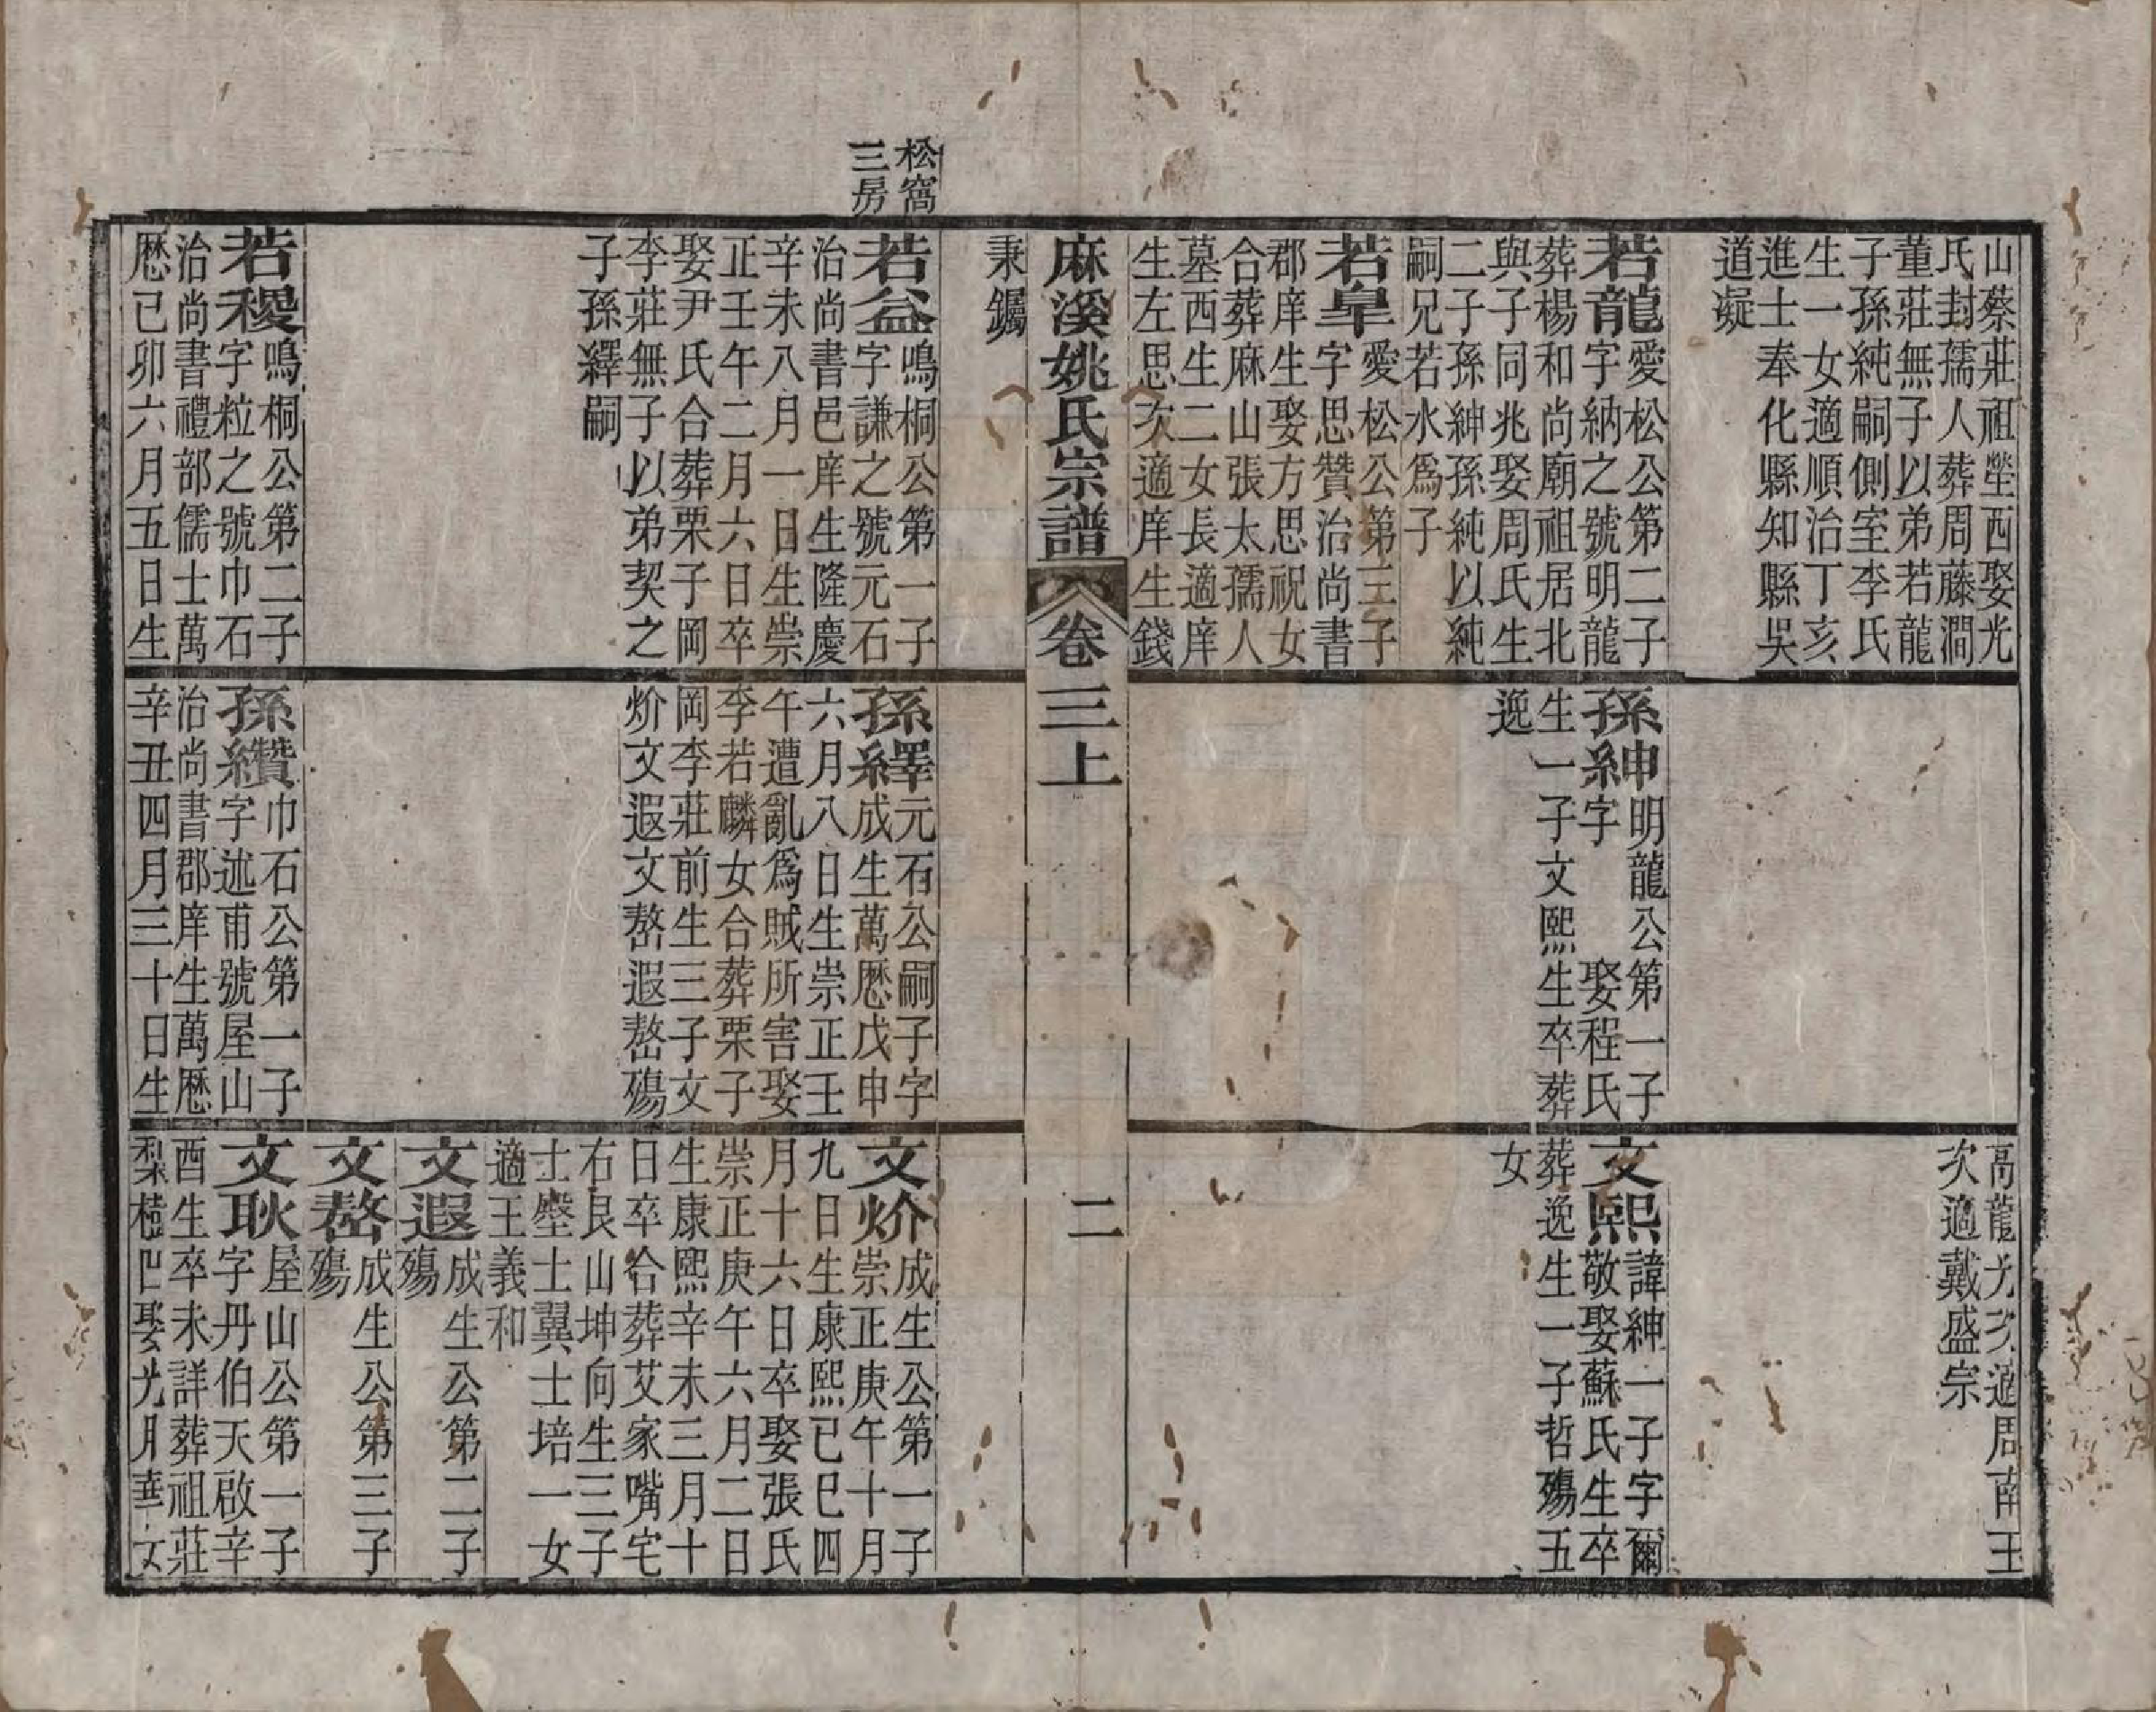 山蔡莊祖塋西娶光
氏封孺人葬周藤澗
董莊無子以弟若龍
子孫純嗣側室李氏
生一女適順治丁亥
進士奉化縣知縣吳
道凝
若龍愛松公第二子
字納之號明龍
葬楊和尚廟祖居北
與子同兆娶周氏生
二子孫紳孫純以純
嗣兄若水為子
若臯愛松公第三子
字思贊治尚書
郡庠生娶方思祝女
合葬麻山張太孺人
墓西生二女長適庠
生左思次適庠生錢
孫紳明龍公第一子
字 娶程氏
生一子文熙生卒葬
逸
高龍光次適周南王
次適戴盛宗
文熙諱紳一子字爾
敬娶蘇氏生卒
葬逸生一子哲殤五
女
麻溪姚氏宗譜
卷三上
二
秉鑼
松窩
三房
若益鳴桐公第一子
字謙之號元石
治尚書邑庠生隆慶
辛未八月一日生崇
正壬午二月六日卒
娶尹氏合葬栗子岡
李莊無子以弟契之
子孫繹嗣
若稷鳴桐公第二子
字粒之號巾石
治尚書禮部儒士萬
厯已卯六月五日生
孫繹元石公嗣子字
成生萬厯戊申
六月八日生崇正壬
午遭亂為賊所害娶
李若麟女合葬栗子
岡李莊前生三子文
炌文遐文嶅遐嶅殤
孫纘巾石公第一子
字述甫號屋山
治尚書郡庠生萬厯
辛丑四月三十日生
文炌成生公第一子
崇正庚午十月
九日生康熙已巳四
月十六日卒娶張氏
崇正庚午六月二日
生康熙辛未三月十
日卒合葬艾家嘴宅
右艮山坤向生三子
士壂士翼士培一女
適王義和
文遐成生公第二子
殤
文嶅成生公第三子
殤
文耿屋山公第一子
字丹伯天啟辛
酉生卒未詳葬祖莊
娶光月華女